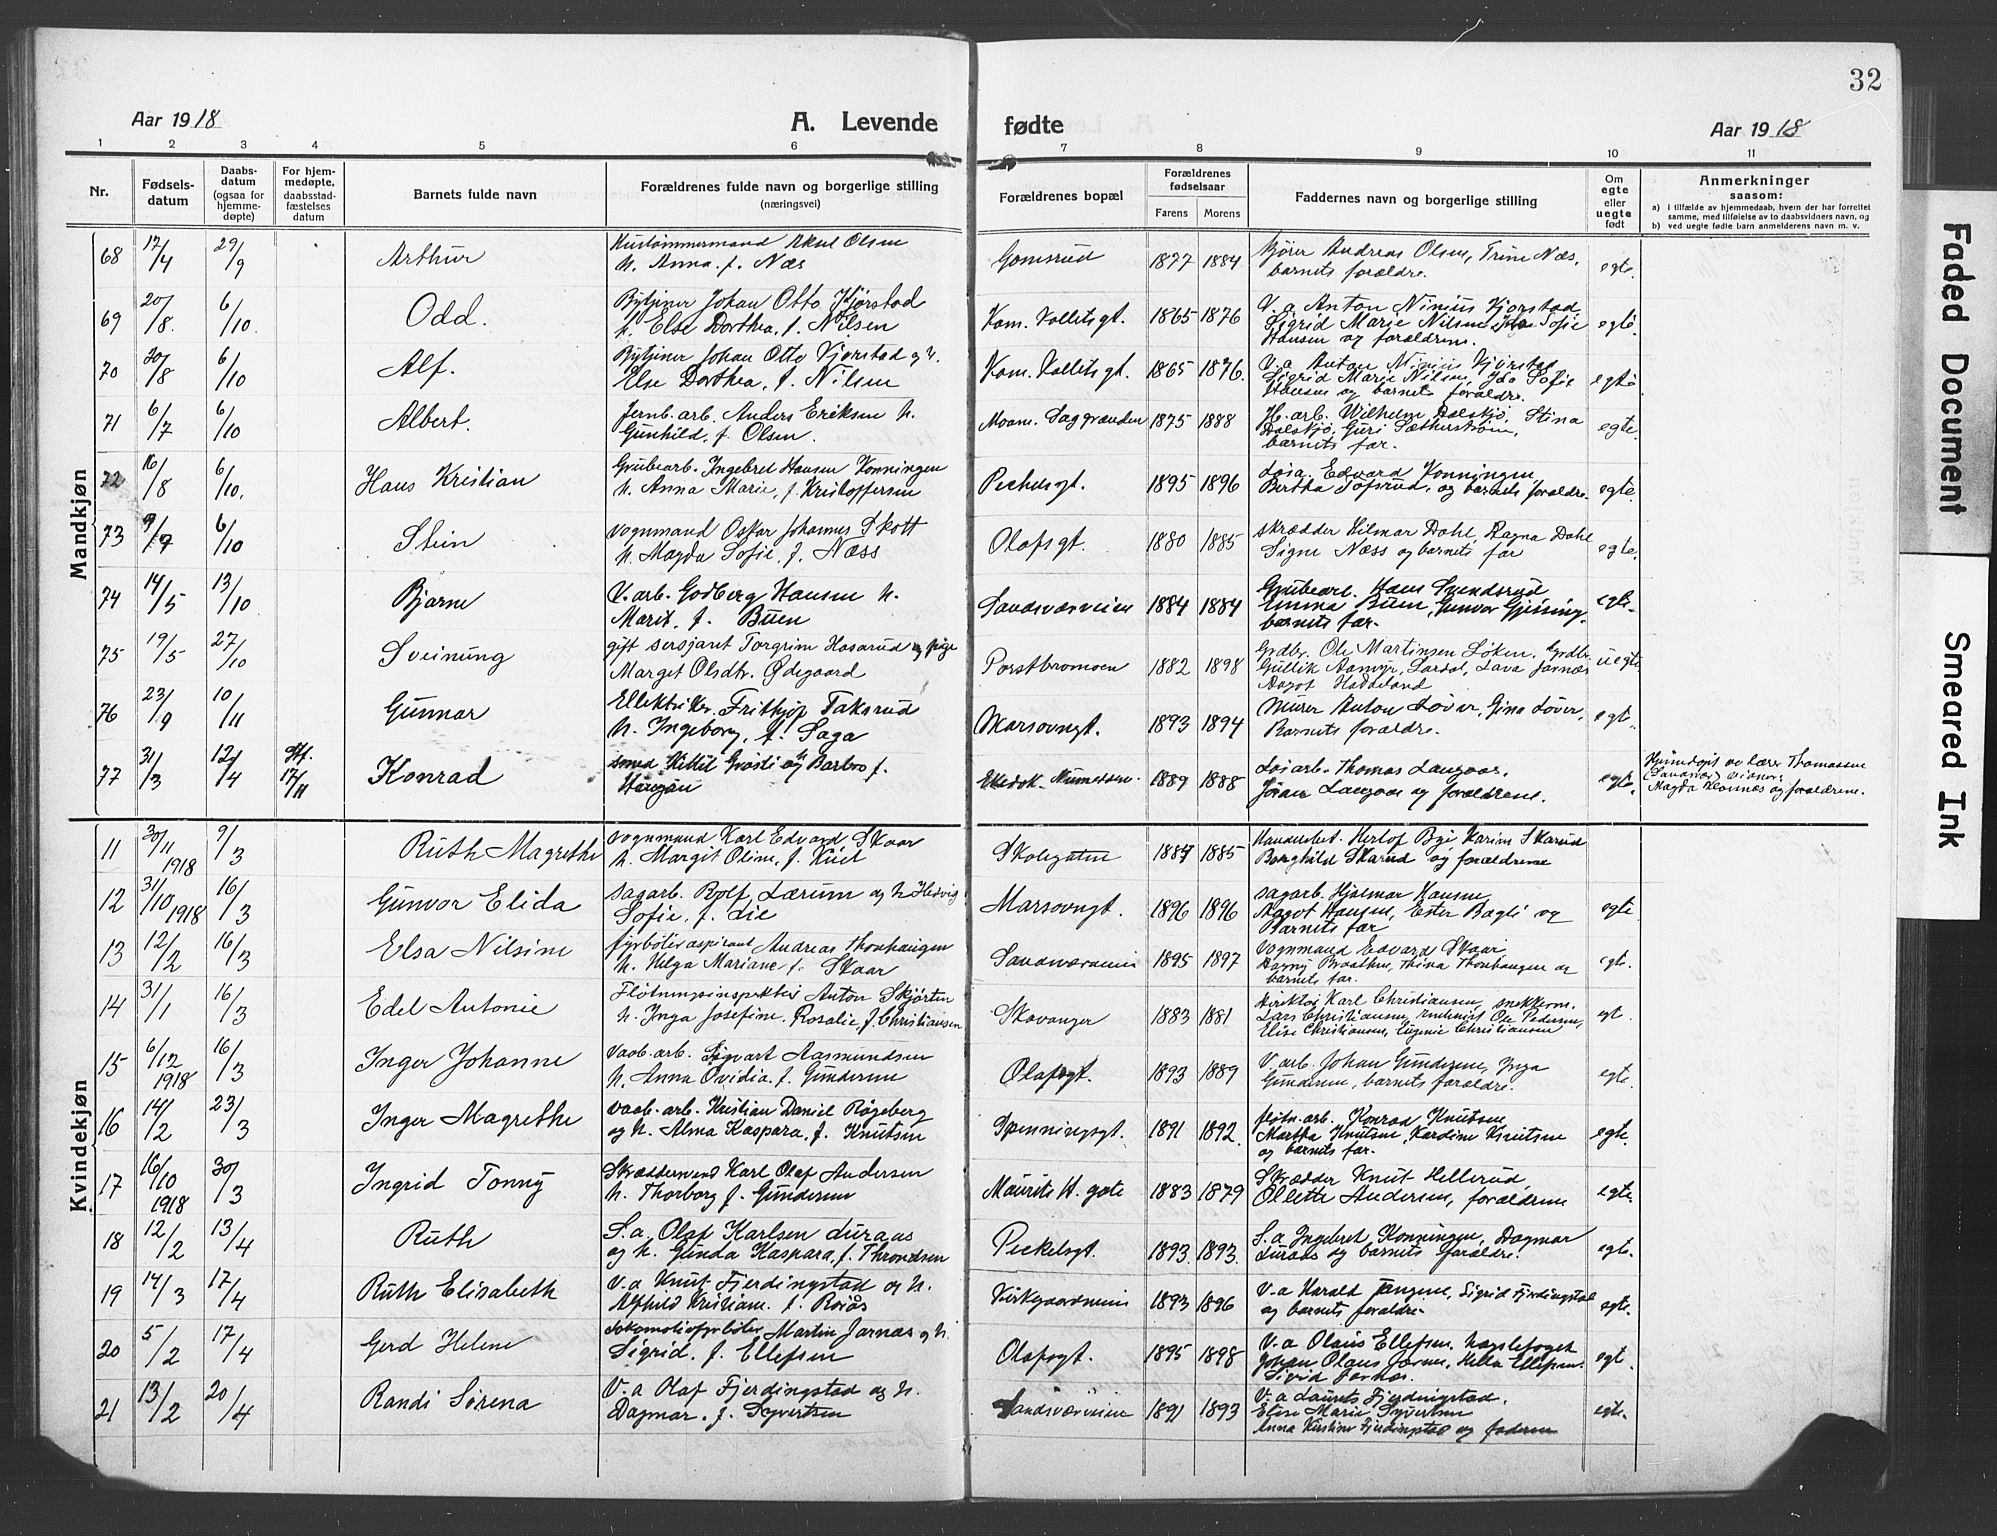 32
Aar 1918
A. Levende
fødte
Aar 1918
1 2 3 4 5 6 7 8 9 10 11
Nr.
Fødsels-
datum
Daabs-
datum
(ogsaa for
hjemme-
døpte)
For hjem-
medøpte,
daabsstad-
fæstelses
datum
Barnets fulde navn
Forældrenes fulde navn og borgerlige stilling
(næringsvei)
Forældrenes bopæl
Forældrenes
fødselsaar
Farens Morens
Faddernes navn og borgerlige stilling
Om
egte
eller
uegte
født
Anmerkninger
saasom:
a) i tilfælde av hjemmedaab, hvem der har forrettet
samme, med tilføielse av to daabsvidners navn, og
b) ved uegte fødte barn anmelderens navn m. v.
Mandkjøn
68 17/4 29/9 Arthur
Olsen
h. Anna f. Næs
Gomsrud 1877 1884
Andreas Olsen, Trine Næs,
barnets forældre.
egte.
69 20/8. 6/10. Odd.
Johan Otto Kjørstad
h. Else Dorthea, f. Nilsen
Kom. Kollets gt. 1865 1876
V. a Anton Kjørstad
Sigrid Marie Nilsen, Sofie
Hansen og forældrene.
egte
70 20/8 6/10 Alf.
Johan Otto Kjørstad og h.
Else Dorthea, f. Nilsen
Kom. Kollets gt. 1865 1876.
V. a Anton Kjørstad
Sigrid Marie Nilsen, Sofie
Hansen og barnets forældre.
egte
71 6/7 6/10 Albert.
Jernb. arb. Anders Eriksen h.
Gunhild, f. Olsen.
1875 1888
H. arb. Wilhelm Dalskjø, Stina
Dalskjø, Guri
barnets far.
egte.
72 16/8 6/10. Hans Kristian
Grubearb. Ingebret Hansen Konningen
h. Anna Marie, f. Kristoffersen
Peckelsgt. 1895 1896
Edvard Konningen,
Bertha og barnets forældre.
egte.
73 9/9 6/10 Stein
vognmand Oskar Johannes Skott
h. Magda Sofie, f. Næss
Olafsgt. 1880 1885
skrædder Hilmar Dahl, Ragna Dahl
Signe Næss og barnets far
egte.
74 14/5 13/10 Bjarne
V. arb. Godberg Hansen h.
Marit, f. Buen
Sandsværveien 1884 1884
Grubearb. Hans Svendsrud,
Emma Buen, Gunvor
barnets far.
egte.
75 19/5 27/10 Sveinung
gift sersjant Torgrim Hasarud og pige
Margit Olsdtr. Ødegaard
1882 1898
Grdbr. Ole Martinsen Løken, Grdbr.
Gullik
Aagot Haddeland
uegte
76 23/9 10/11 Gunnar
Elektriker Frithjof Taksrud
h. Ingeborg, f. Saga
Marsovngt. 1893 1894
Murer Anton Løver, Gina Løver,
Barnets forældre.
egte.
77 31/3 12/4 Stf. 17/11 Konrad
smed Kittil og Barbro f.
1889 1888
Thomas Langaas,
Langaas og forældrene.
egte.
Hjemdøpt av lærer Thomassen
Magda og forældrene.
Kvindekjøn
11 30/11 1918 9/3 Ruth Magrethe
vognmand Karl Edvard Skaar
h. Margit Oline, f.
Skolegaten 1887 1885
Herlof Bye Karin Skarud
Borghild Skarud og forældrene
12 31/10 1918 16/3 Gunvor Elida
sagarb. Rolf Lærum og h. Hedvig
Sofie, f. Lie
Marsovngt. 1896 1896
sagarb. Hjalmar Hansen,
Aagot Hansen, Ester og
Barnets far
egte
13 12/2 16/3 Elsa Nilsine
fyrbøteraspirant Andreas Thonhaugen
h. Helga Mariane f. Skaar
Sandsværveien 1895 1897
vognmand Edvard Skaar
Braathen, Thina Thonhaugen og
barnets far.
egte.
14 31/1 16/3 Edel Antonie
Fløtningsinspektør Anton Skjørten
h. Inga Josefine Rosalie f. Christiansen
Skavanger 1883 1881
Direktør Karl Christiansen, snekkerm.
Lars Christiansen, Ole Pedersen,
Elise Christiansen, Eugenie Christiansen
egt.
15 6/12 1918 16/3 Inger Johanne
vaab. arb. Sigvart Aasmundsen
h. Anna Ovidia f. Gundersen
Olafsgt. 1893 1889
V. arb. Johan Gundersen, Inga
Gundersen, barnets forældre.
egte.
16 14/2 23/3 Inger Magrethe
vaab. arb. Kristian Daniel Røgeberg
og h. Alma Kaspara, f. Knutsen
Spenningsgt. 1891 1892.
fløtn. arb. Konrad Knutsen
Martha Knutsen, Kardine Knutsen
og barnets far.
egte.
17 16/10 1918 30/3 Ingrid Tonny
Skræddersvend Karl Olaf Andersen
h. Thorborg f. Gundersen
Maurits H. gate 1883 1879
Skrædder Knut Hellerud,
Olette Andersen, forældrene
egte.
18 12/2 13/4 Ruth
S. a. Olaf Karlsen Luraas
og h. Gunda Kaspara, f. Throndsen
Peckelsgt. 1893 1893.
S. a Ingebret Konningen, Dagmar
Luraas og barnets forældre.
egte.
19 14/3 17/4 Ruth Elisabeth
V. a Knut Fjerdingstad og h.
Alfhild Kristiane f.
Kirkegaardveien 1893 1896
V. a Harald Tangene, Sigrid Fjerdingstad
og barnets forældre.
egte.
20 5/2 17/4 Gerd Helene
Lokomotivfyrbøter Martin Jarnæs og h.
Sigrid. f. Ellefsen
Olafsgt. 1895 1898
V. a Olaus Ellefsen,
Johan Olaus Hilda Ellefsen,
Jarnæs.
egt.
21 13/2 20/4 Randi Sørena
V. a Olaf Fjerdingstad og h.
Dagmar. f. Syvertsen
Sandsværveien 1891 1893
V. a Laurits Fjerdingstad.
Elise Marie Syvertsen
Anna Kirstine Fjerdingstad og faderen
egte.
Faded Document
Smeared Ink